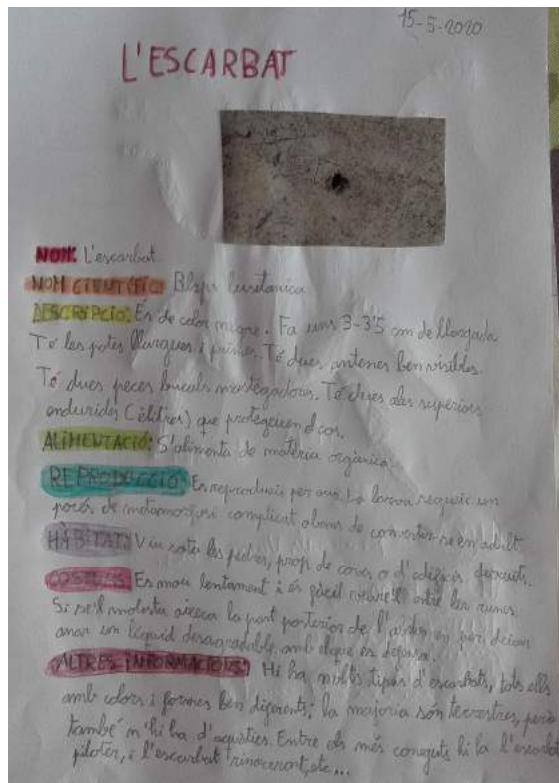 15-5-2020
L'ESCARBAT
NOM: L'escarbat
NOM CIENTÍFIC: Blaps lusitanica
DESCRIPCIÓ: És de color negre. Fa uns 3-3'5 cm de llargada
Té les potes llargues i primes. Té dues antenes ben visibles.
Té dues peces bucals mastegadores. Té dues ales superiors
endurides (èlitres) que protegeixen el cos.
ALIMENTACIÓ: S'alimenta de matèria orgànica.
REPRODUCCIÓ: Es reprodueix per ous. La larva segueix un
procés de metamorfosi complicat abans de convertir-se en adult
HÀBITAT: Viu sota les pedres, prop de coves o d'edificis derruïts.
COSTUMS: Es mou lentament i és fàcil veure'll entre les runes.
Si se'l molesta aixeca la part posterior de l' per deixar
anar un líquid desagradable amb el que es defensa.
ALTRES INFORMACIONS: Hi ha molts tipus d'escarbats, tots ells
amb colors i formes ben diferents; la majoria són terrestres, però
també n'hi ha d'aquàtics. Entre els més coneguts hi ha l'escarbat
piloter, i l'escarbat rinoceront, etc...